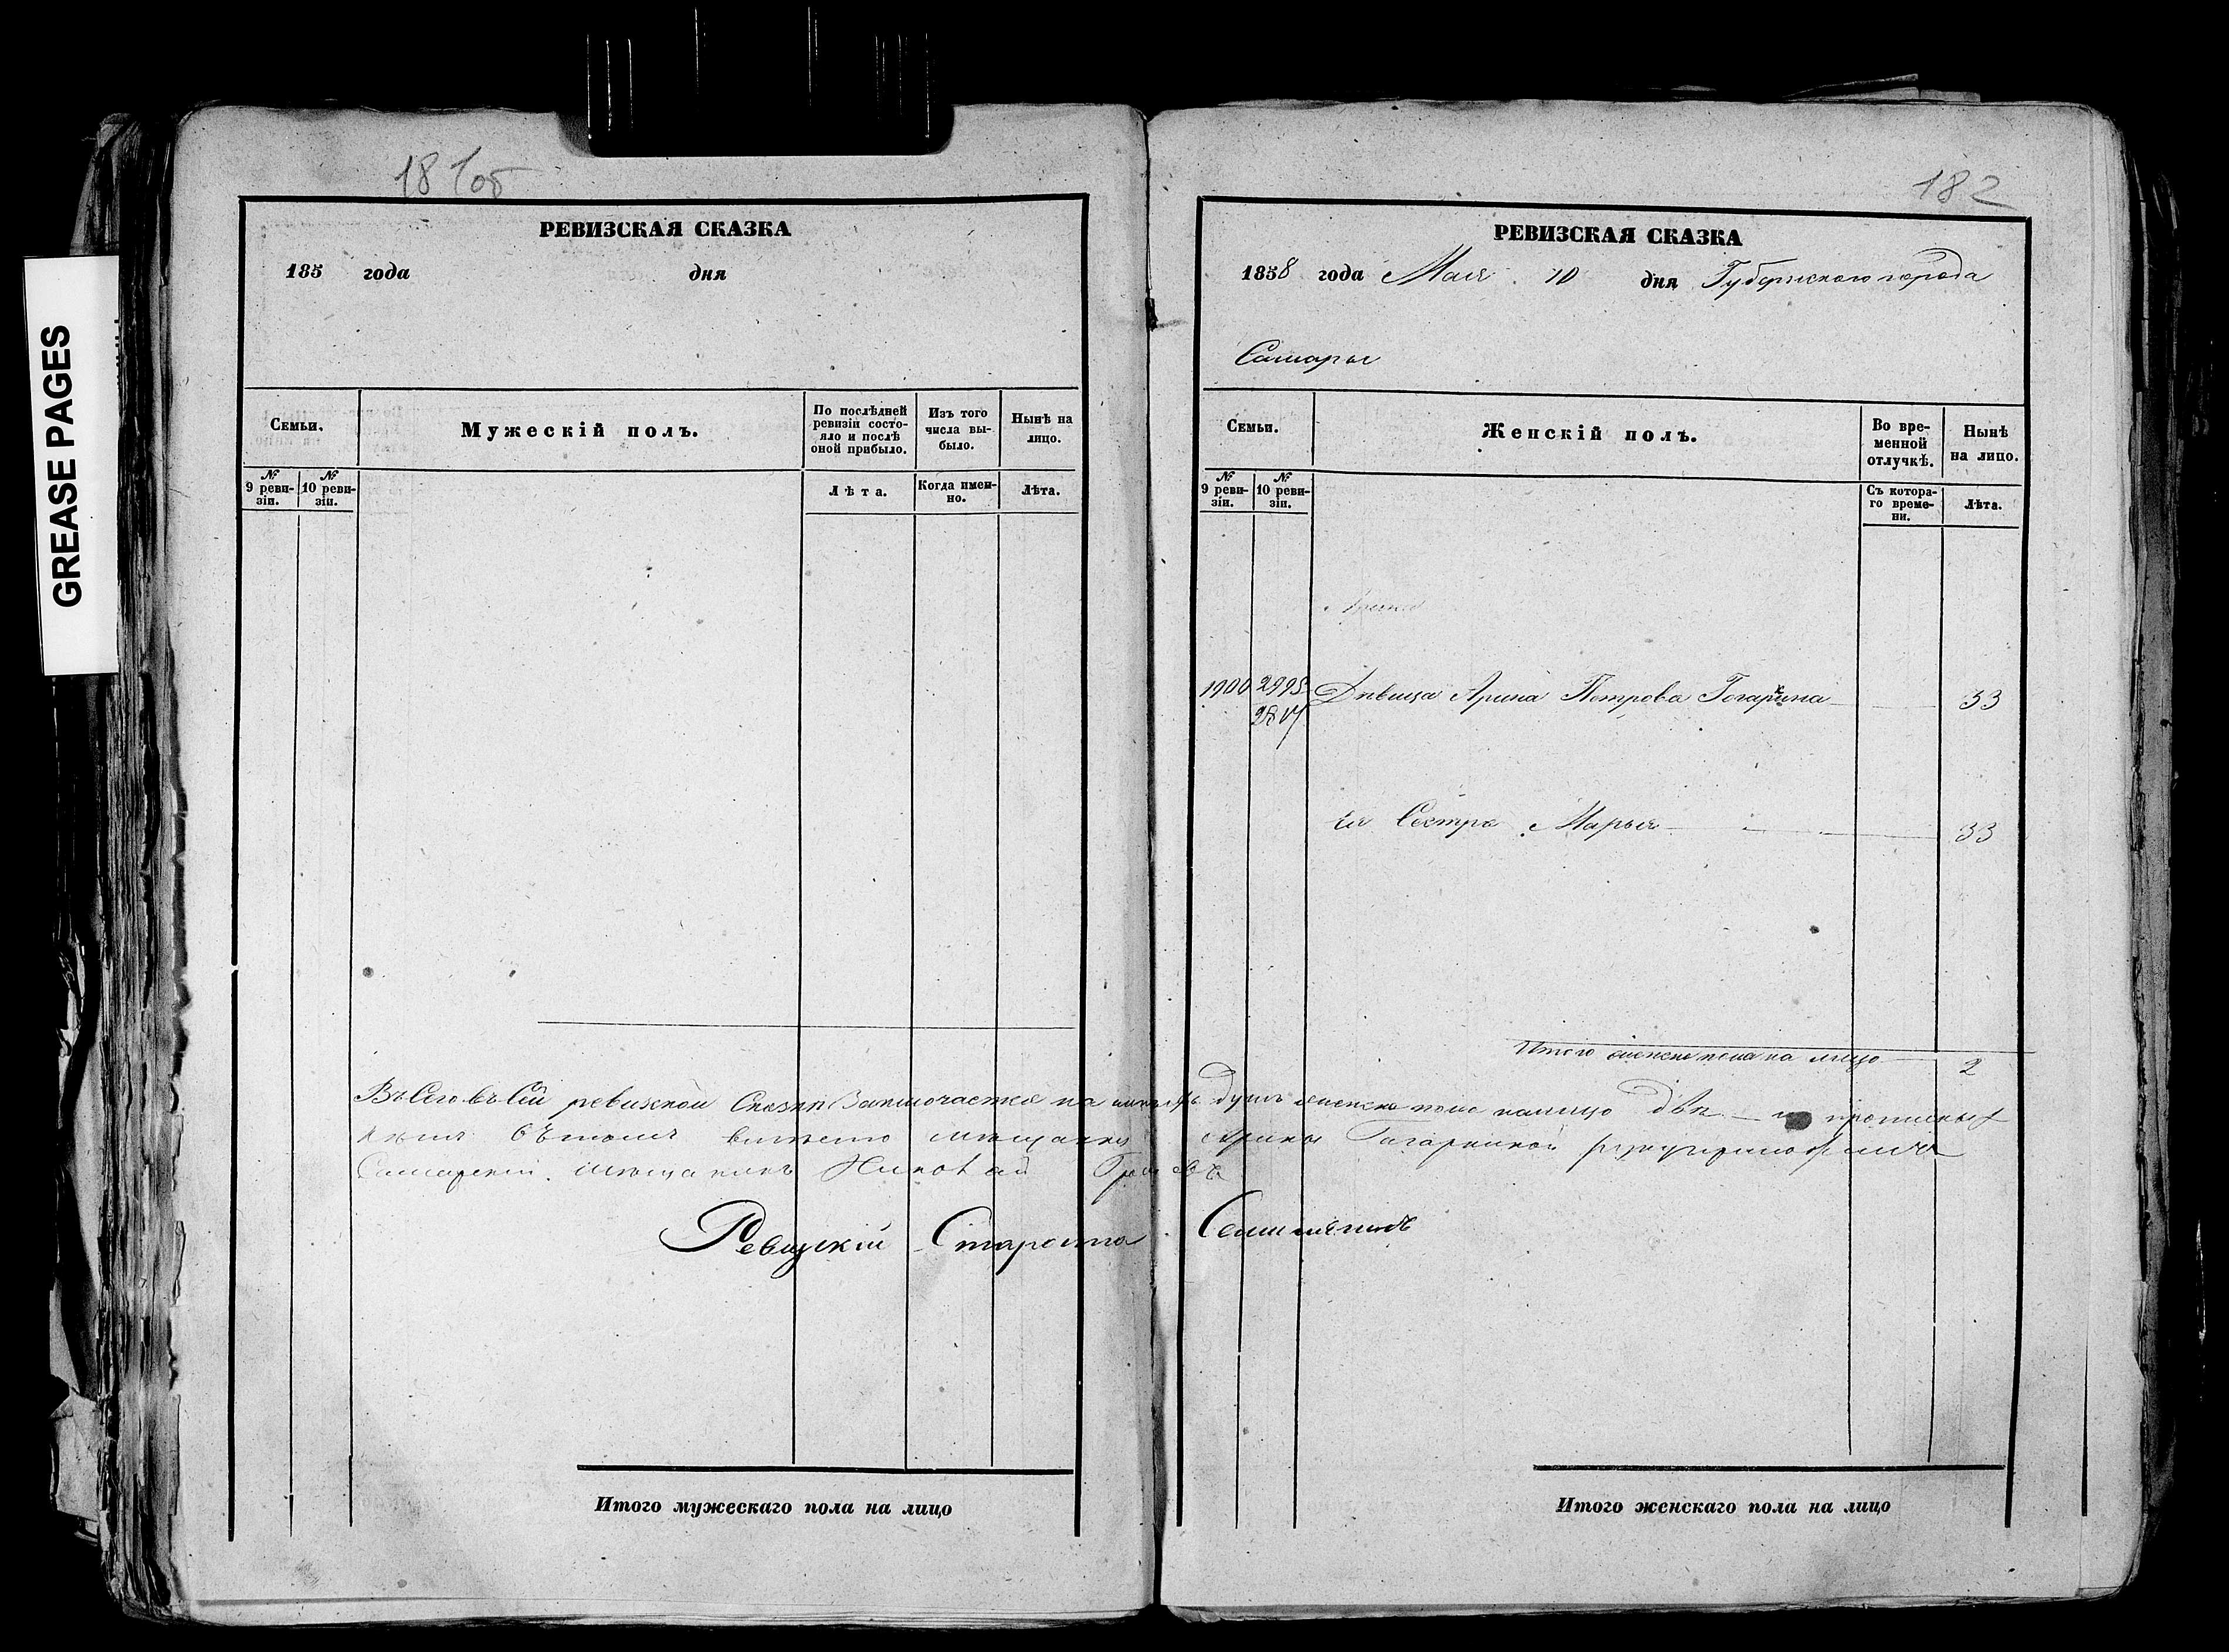 GREASE PAGES
181об
РЕВИЗСКАЯ СКАЗКА
185 года дня
Семьи.
Мужескій полъ.
По послѣдней ревизіи состо-
яло и послѣ оной прибыло.
Изъ того числа вы-
было.
Нынѣ на лицо.
№ 9 реви-
зіи.
№ 10 реви-
зіи.
Лѣта.
Когда имен-
но.
Лѣта.
Итого мужескаго пола на лицо
182
РЕВИЗСКАЯ СКАЗКА
1858 года Мая 10 дня Губернскаго города
Самары
Семьи.
Женскій полъ.
Во вре-
менной
отлучкѣ.
Нынѣ
на лицо.
№ 9 реви-
зіи.
№ 10 реви-
зіи.
Съ котора-
го време-
ни.
Лѣта.
Арина
1900 Дѣвица Арина Петрова Гогарина 33
ея Сестра Марья 33
Итого женска пола на лицо 2
Въсего въ Сей ревизской Сказкѣ Заключается душъ женска пола налицо двѣ
вмѣсто мещанки Арины Гагариной
Самарскій мещанинъ Николай
Ревизскій Староста
Итого женскаго пола на лицо